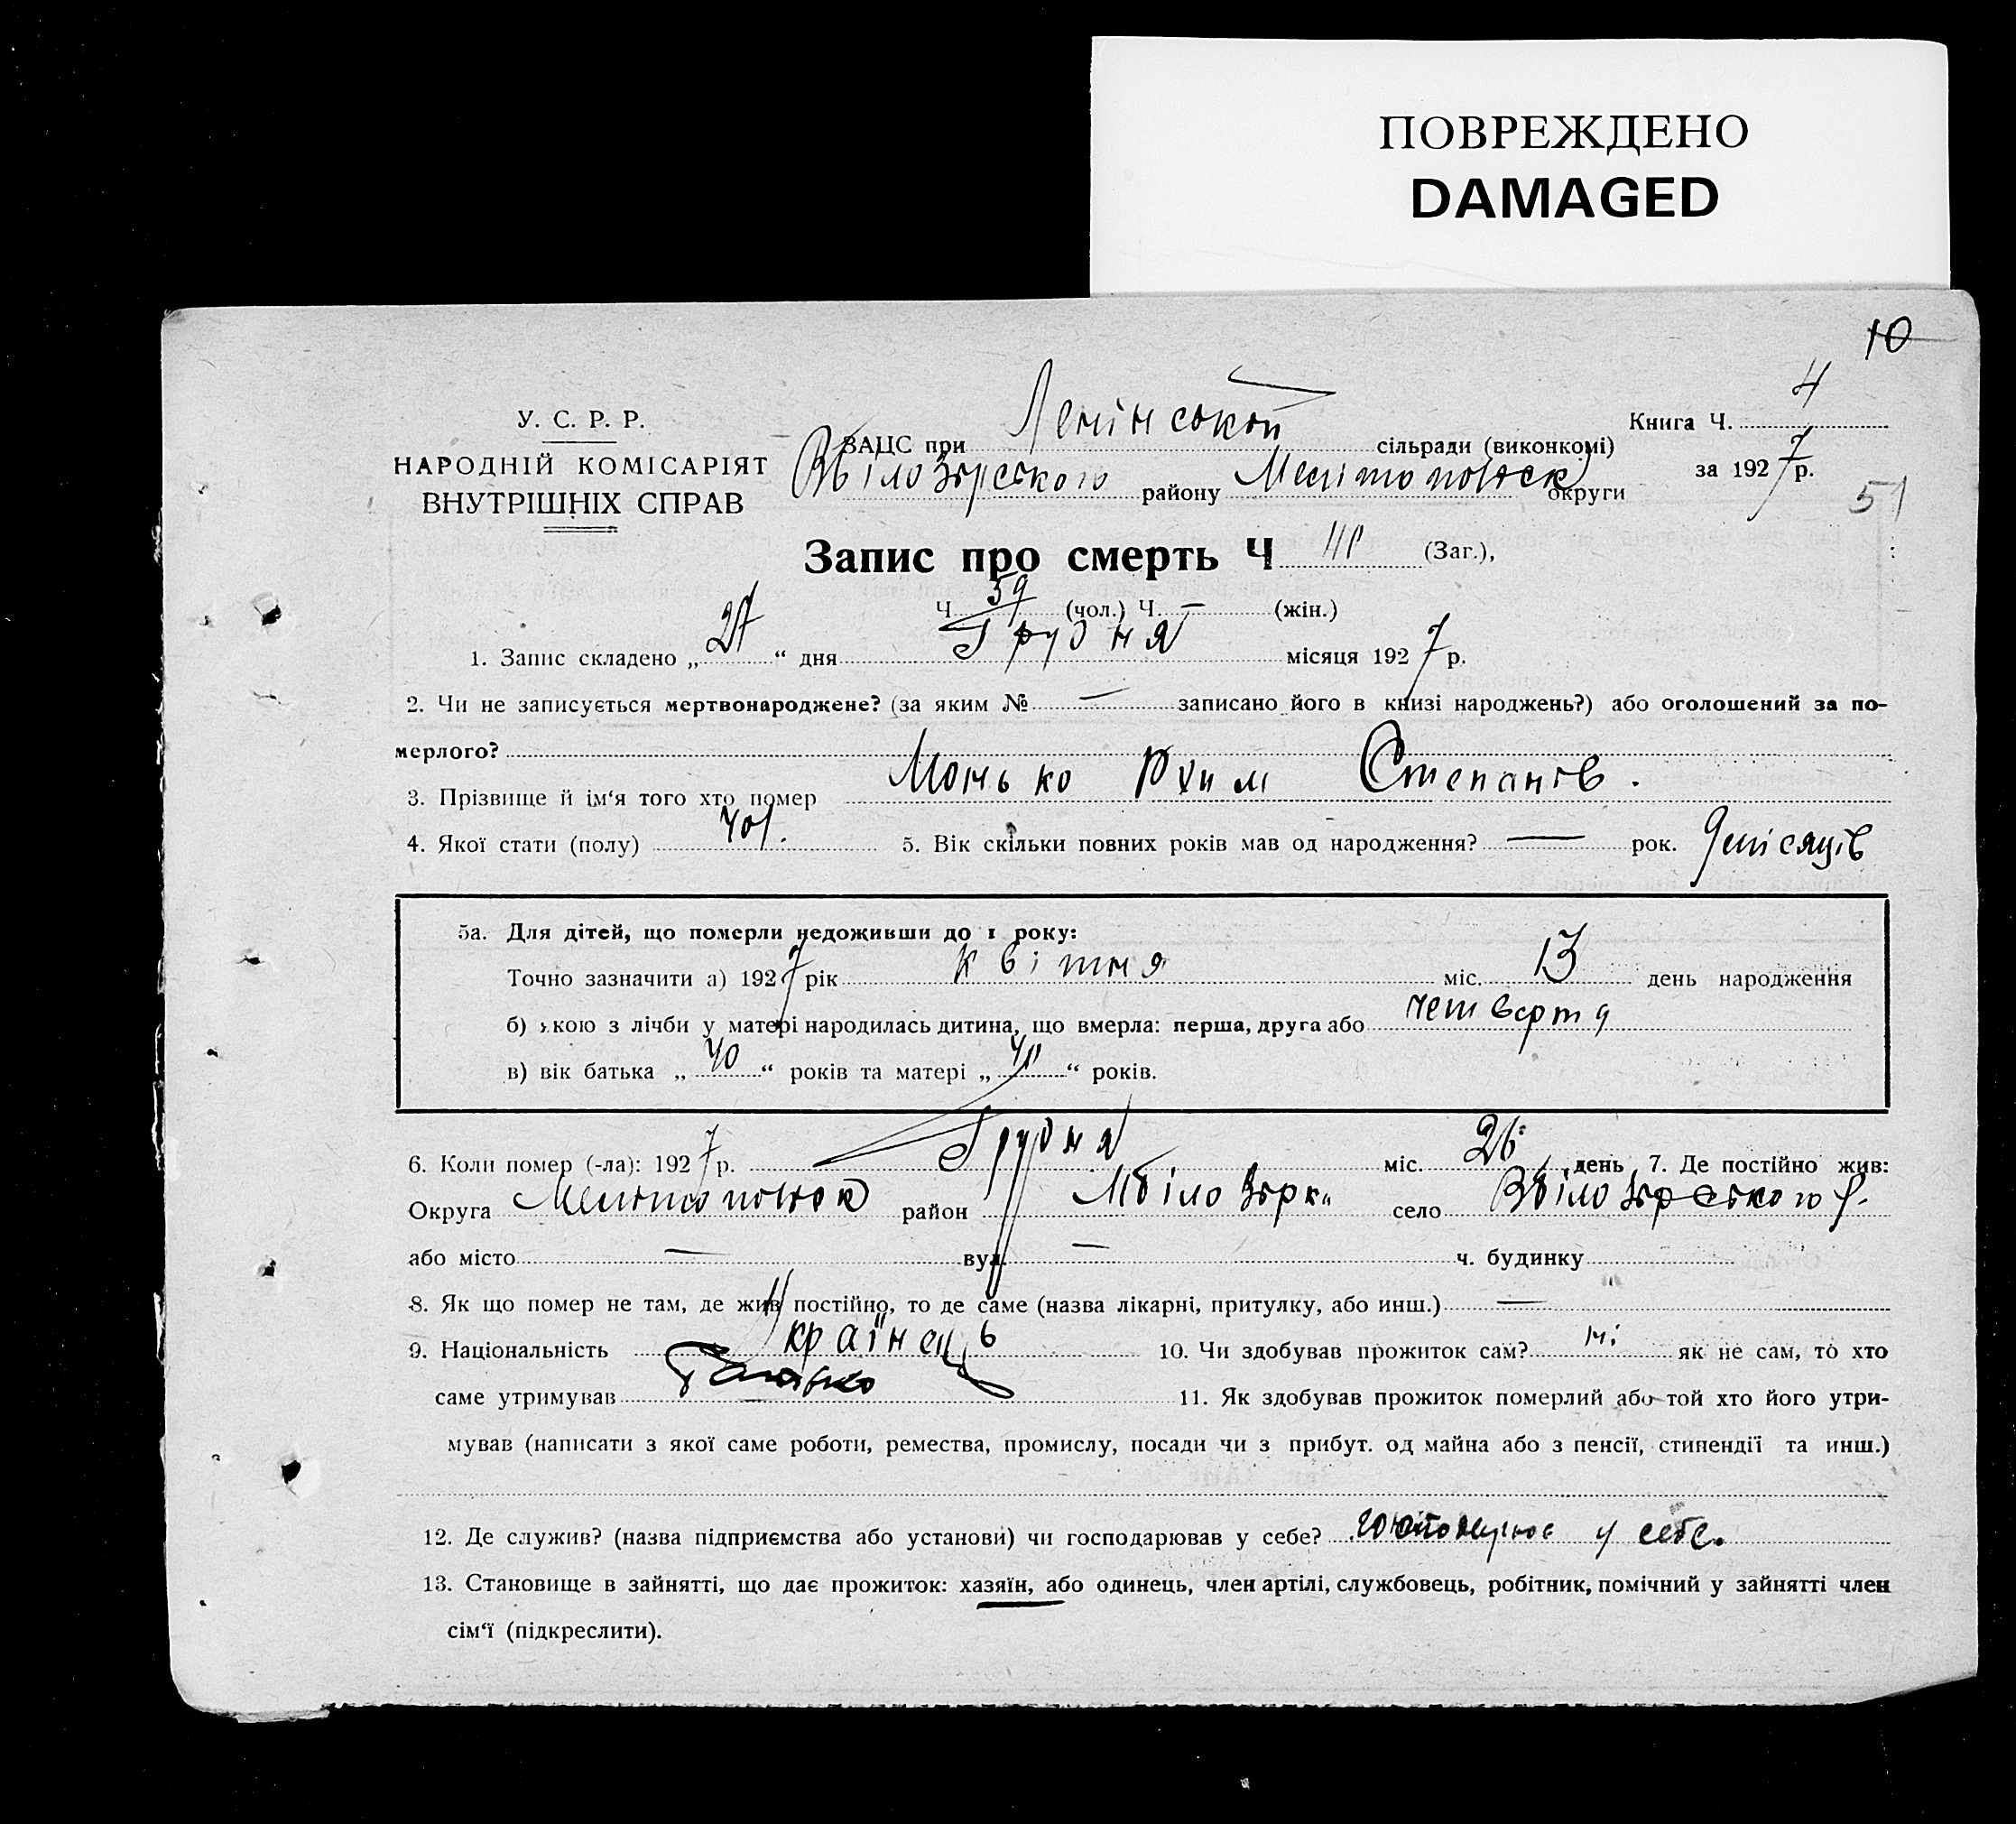 ПОВРЕЖДЕНО
DAMAGED
10
У. С. Р. Р.
НАРОДНІЙ КОМІСАРІЯТ
ВНУТРІШНІХ СПРАВ
ЗАЦС при Ленінської сільради (виконкомі)
району округи
Книга Ч. 4
за 1927 р.
51
Запис про смерть Ч (Заг.),
Ч 59 (чол.) Ч. — (жін.)
1. Запис складено „ 27 “ дня Грудня місяця 1927 р.
2. Чи не записується мертвонароджене? (за яким № — записано його в книзі народжень?) або оголошений за по-
мерлого?
3. Прізвище й ім‘я того хто помер Монько Юхим Степанів.
4. Якої стати (полу) чол. 5. Вік скільки повних років мав од народження? — рок. 9 місяців
5а. Для дітей, що померли недоживши до 1 року:
Точно зазначити а) 1927 рік квітня міс. 13 день народження
б) якою з лічби у матері народилась дитина, що вмерла: перша, друга або четверта
в) вік батька „ 40 “ років та матері „ 40 “ років.
6. Коли помер (-ла): 1927 р. Грудня міс. 26 день 7. Де постійно жив:
Округа район село
або місто — вул. — ч. будинку
8. Як що помер не там, де жив постійно, то де саме (назва лікарні, притулку, або инш.) —
9. Національність Українець 10. Чи здобував прожиток сам? ні як не сам, то хто
саме утримував Батько 11. Як здобував прожиток померлий або той хто його утри-
мував (написати з якої саме роботи, ремества, промислу, посади чи з прибут. од майна або з пенсії, стипендії та инш.)
12. Де служив? (назва підприємства або установи) чи господарював у себе? у себе.
13. Становище в зайнятті, що дає прожиток: хазяїн, або одинець, член артілі, службовець, робітник, помічний у зайнятті член
сім‘ї (підкреслити).